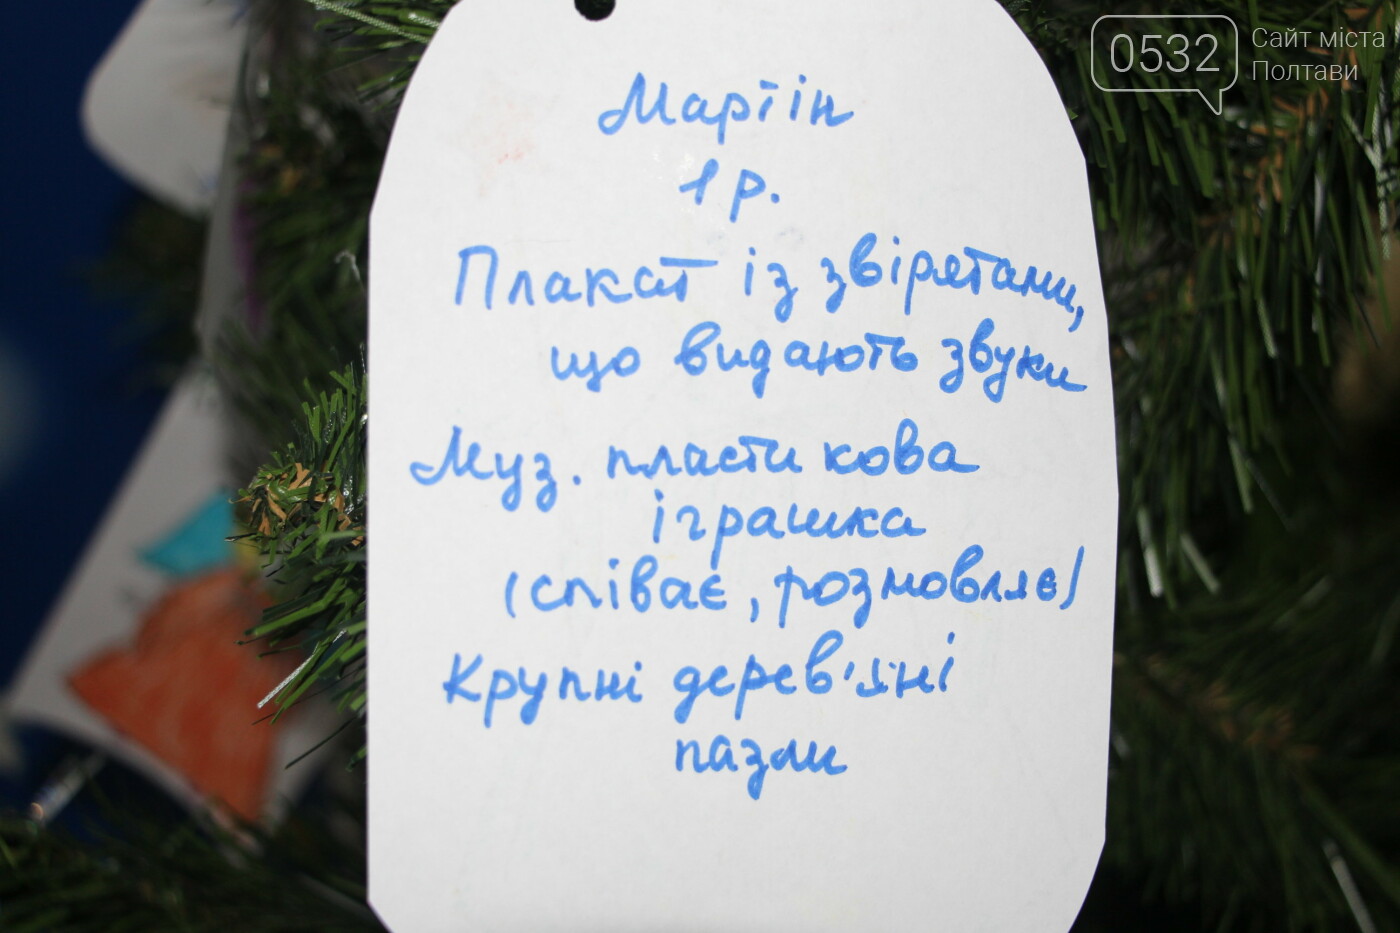 0532
Сайт міста
Полтави
Мартін
1 р.
Плакат із звірятами,
що видають звуки
Муз. пластикова
іграшка
(співає, розмовляє)
Крупні дерев'яні
пазли